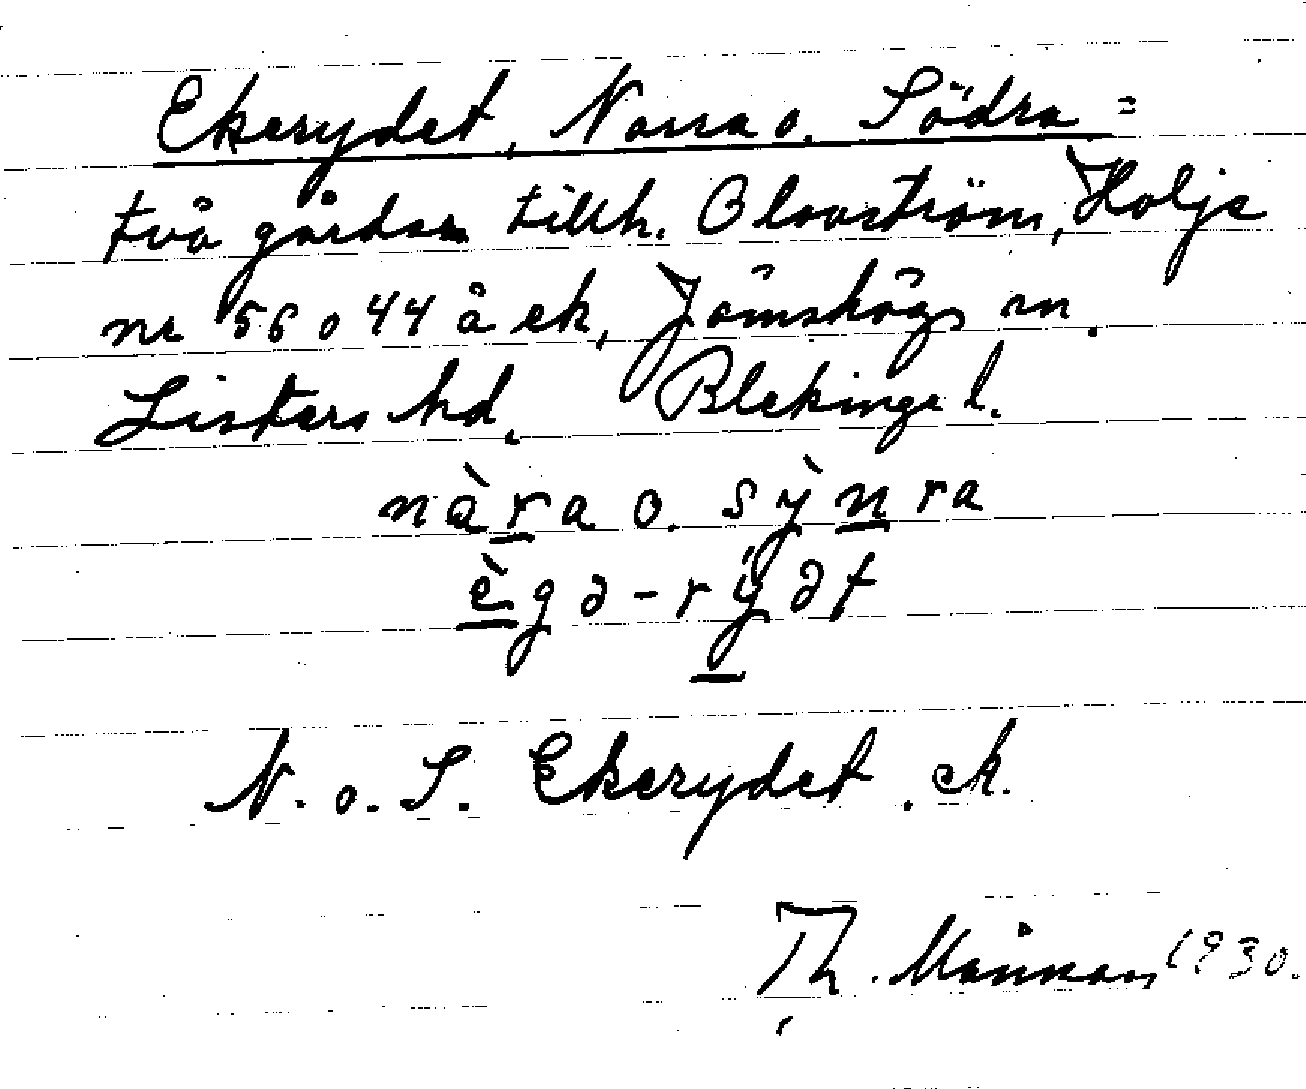 Ekerydet, Norra o. Södra =
två gårdar tillh. Olovström, Holje
nr 56 o 44 å ek, Jämshögs sn.
Listers hd. Blekinge l.
nàra o. sỳnra
ègə-rÿət
N. o. S. Ekerydet. ek.
Th. 1930.